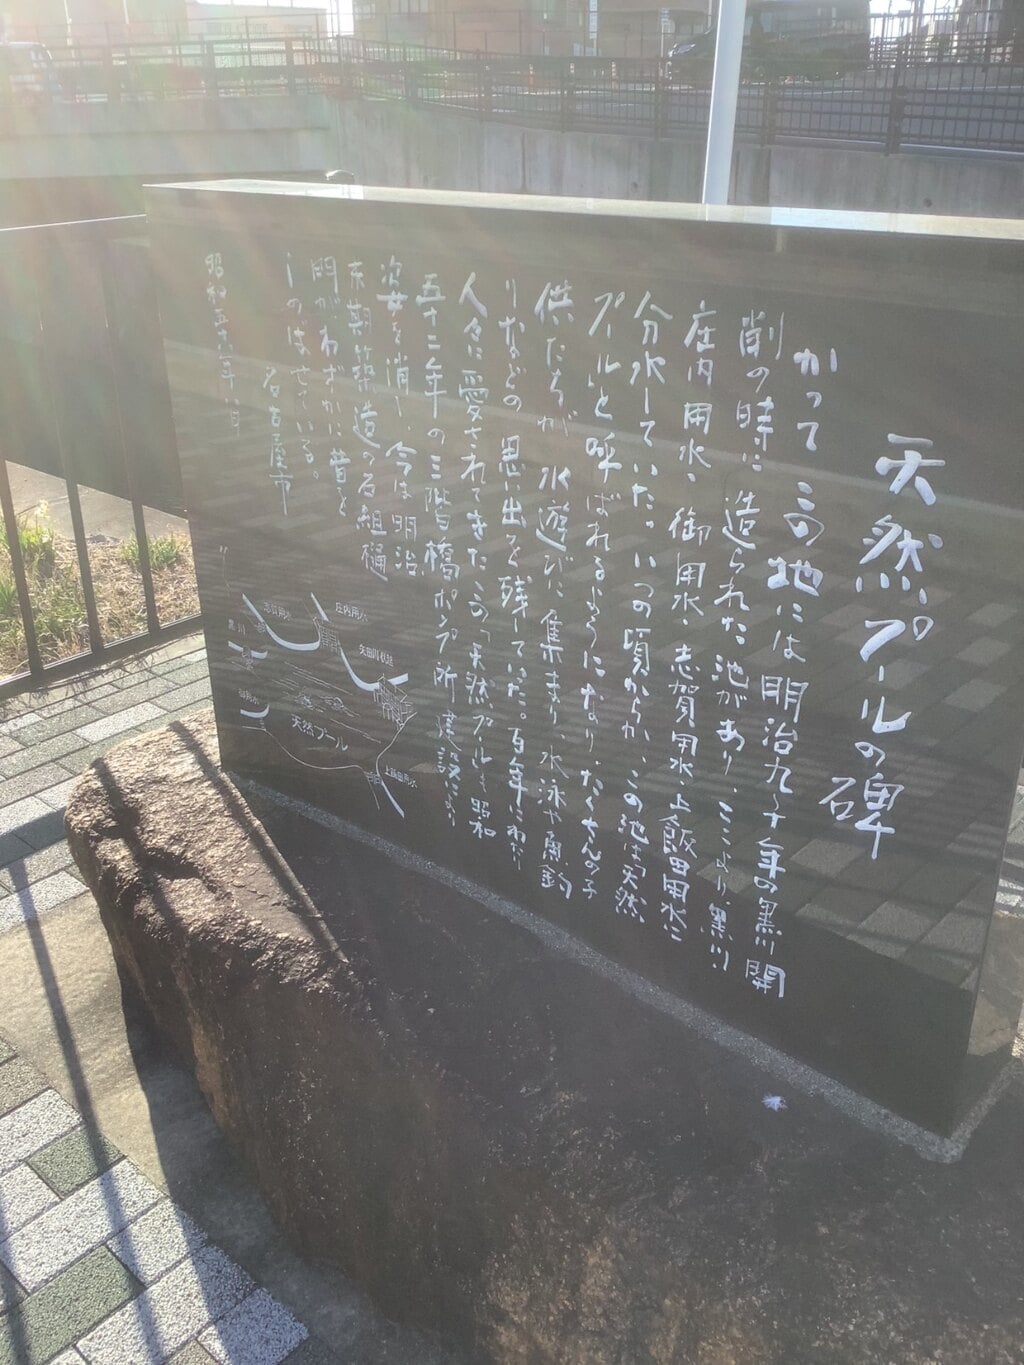 天然プールの碑
かつてこの地には明治九〜十年の黒川開
削の時に造られた池があり、ここより、黒川、
庄内用水、御用水、志賀用水、上飯田用水に
分水していた。いつの頃からか、この池は「天然
プール」と呼ばれるようになり、たくさんの子
供たちが水遊びに集まり、水泳や魚釣
りなどの思い出を残していった。百年にわたり
人々に愛されてきたこの「天然プール」も昭和
五十二年の三階橋ポンプ所建設により
姿を消し、今は明治
末期築造の石組樋
門がわずかに昔を
しのばせている。
名古屋市
昭和五十 年八月
志賀用水
庄内用水
黒川
矢田川伏越
御用水
天然プール
上飯田用水